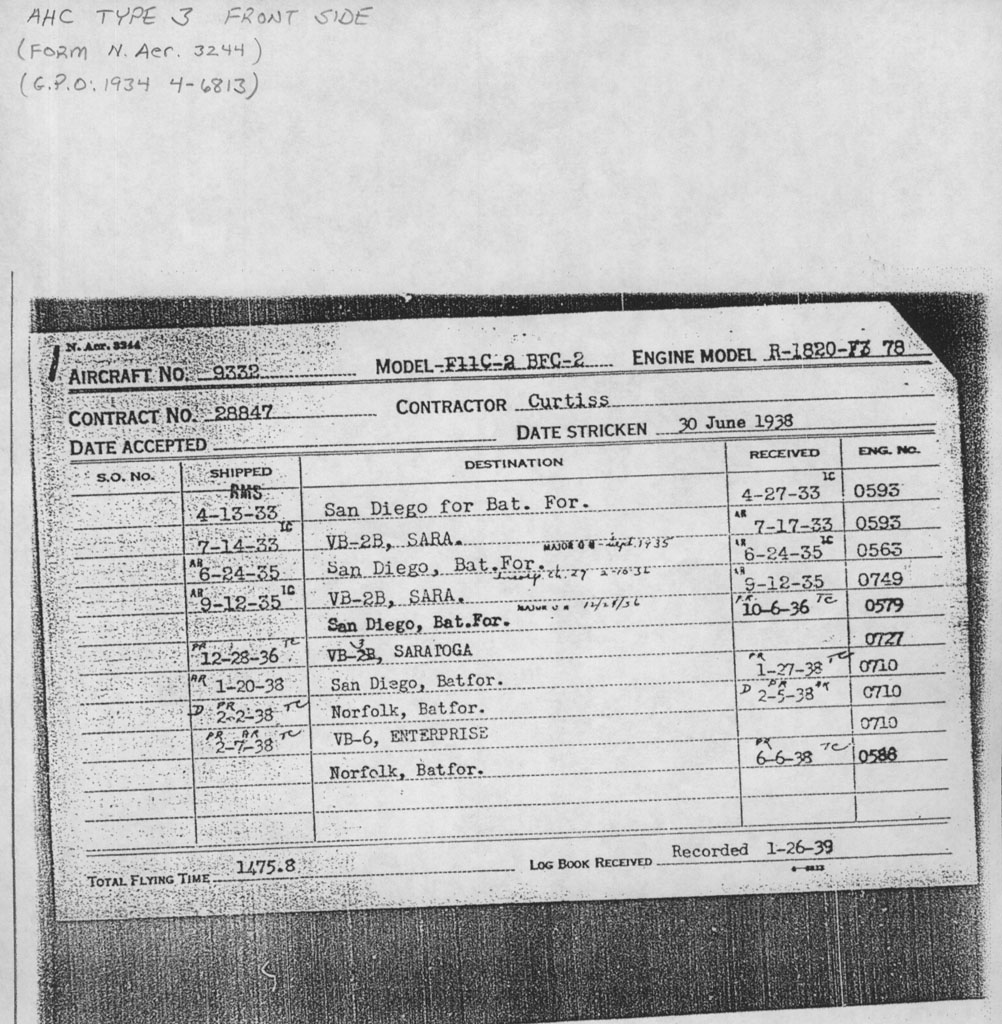 AHC TYPE 3 FRONT SIDE
(FORM N. Aer. 3244)
(G.P.O. 1934 4-6813)
N. Aer. 3244
AIRCRAFT NO. 9332 MODEL-F11C-2 BFC-2 ENGINE MODEL R-1820-F3 78
CONTRACT NO. 28847 CONTRACTOR Curtiss
DATE ACCEPTED DATE STRICKEN 30 June 1938
S.O. NO. SHIPPED DESTINATION RECEIVED ENG. NO.
RMS
4-13-33 San Diego for Bat. For. 4-27-33 IC 0593
7-14-33 IC VB-2B, SARA. AR 7-17-33 0593
MAJOR O H - Sept. 1935
AR 6-24-35 San Diego, Bat.For. AR 6-24-35 IC 0563
AR 9-12-35 IC VB-2B, SARA. AR 9-12-35 0749
MAJOR O H 12/28/36
San Diego, Bat.For. PR 10-6-36 TC 0579
PR 12-28-36 TC VB-2B, 3 SARATOGA 0727
AR 1-20-38 San Diego, Batfor. PR 1-27-38 TC 0710
D PR 2-2-38 TC Norfolk, Batfor. D PR 2-5-38 AR 0710
PR AR 2-7-38 TC VB-6, ENTERPRISE 0710
Norfolk, Batfor. PR 6-6-38 TC 0588
TOTAL FLYING TIME 1475.8 LOG BOOK RECEIVED Recorded 1-26-39
4-6813